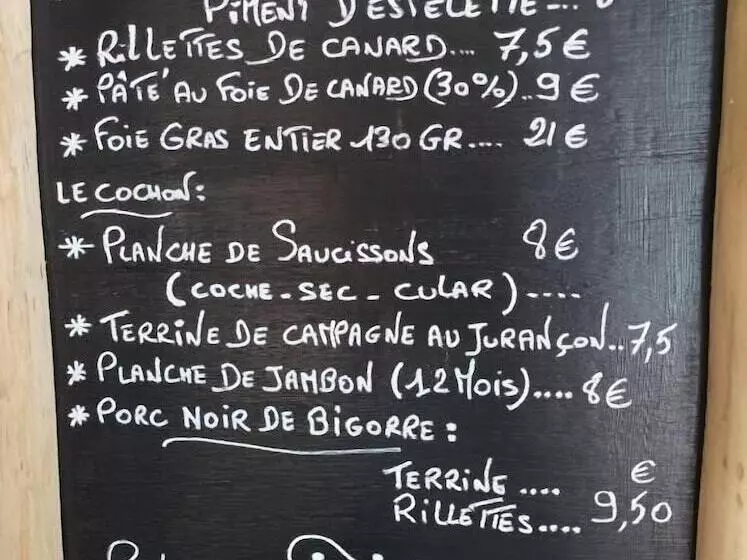 PIMENT D'ESPELETTE....
* RILLETTES DE CANARD.... 7,5€
* PÂTÉ AU FOIE DE CANARD (30%)..9€
* FOIE GRAS ENTIER 130 GR.... 21€
LE COCHON:
* PLANCHE DE SAUCISSONS 8€
(COCHE-SEC-CULAR)....
* TERRINE DE CAMPAGNE AU JURANÇON..7,5
* PLANCHE DE JAMBON (12 MOIS).... 8€
* PORC NOIR DE BIGORRE:
TERRINE .... €
RILLETTES.... 9,50